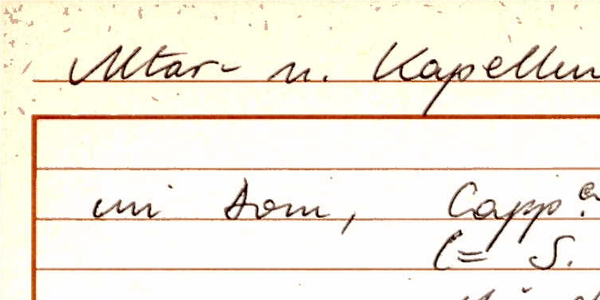 Altar- u. Kapellen
im Dom, Capp.
(= S.